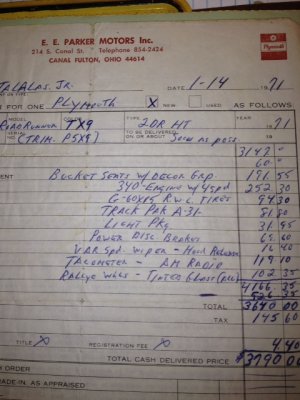 E. E. PARKER MOTORS Inc.
214 S. Canal St. Telephone 854-2424
CANAL FULTON, OHIO 44614
Plymouth
TALALAS, JR. DATE 1-14 1971
FOR ONE PLYMOUTH X NEW USED AS FOLLOWS
MODEL TYPE YEAR
ROADRUNNER TX9 2DR HT 1971
SERIAL NO. (TRIM. P5X9) TO BE DELIVERED ON OR ABOUT Soon as poss 19
3147 "
60 "
BUCKET SEATS W/ DECOR GRP. 191.55
340 ENGINE W/ 4 SPD 252 30
G-60X15 R.W.L. TIRES 94.30
TRACK PAK A-31
LIGHT PKG
POWER DISC BRAKES
VAR SPd. WIPER - Hood Release
TACOMETER - AM RADIO
RALLYE WHLS - TINTED GLASS (ALL) 102 35
4166 35
526 35
TOTAL 3640 00
TAX 145 60
TITLE X REGISTRATION FEE X 4.40
TOTAL CASH DELIVERED PRICE $3790 00
ORDER
ADE-IN, AS APPRAISED